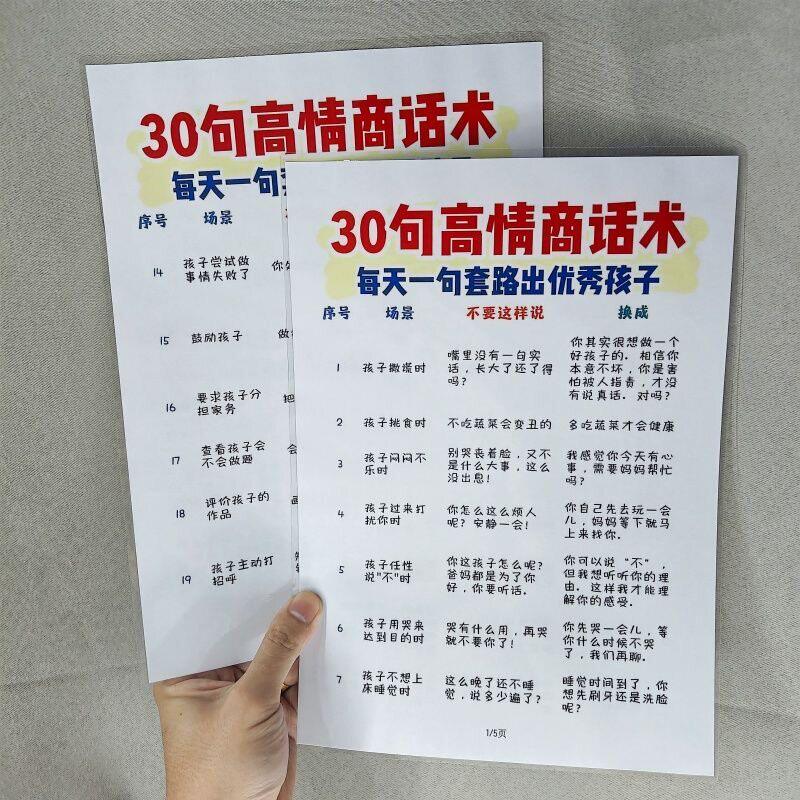 30句高情商话术
每天一句
序号 场景
14 孩子尝试做
事情失败了
15 鼓励孩子
16 要求孩子分
担家务
17 查看孩子会
不会做题
18 评价孩子的
作品
19 孩子主动打
招呼
30句高情商话术
每天一句套路出优秀孩子
序号 场景 不要这样说 换成
1 孩子撒谎时
嘴里没有一句实
话，长大了还了得
吗？
你其实很想做一个
好孩子的。相信你
本意不坏，你是害
怕被人指责，才没
有说真话。对吗？
2 孩子挑食时 不吃蔬菜会变丑的 多吃蔬菜才会健康
3 孩子闷闷不
乐时
别哭丧着脸，又不
是什么大事，这么
没出息！
我感觉你今天有心
事，需要妈妈帮忙
吗？
4 孩子过来打
扰你时
你怎么这么烦人
呢？安静一会！
你自己先去玩一会
儿，妈妈等下就马
上来找你。
5 孩子任性
说"不"时
你这孩子怎么呢？
爸妈都是为了你
好，你要听话。
你可以说 "不"，
但我想听听你的理
由。这样我才能理
解你的感受。
6 孩子用哭来
达到目的时
哭有什么用，再哭
就不要你了！
你先哭一会儿，等
你什么时候不哭
了，我们再聊。
7 孩子不想上
床睡觉时
这么晚了还不睡
觉，说多少遍了？
睡觉时间到了，你
想先刷牙还是洗脸
呢？
1/5页